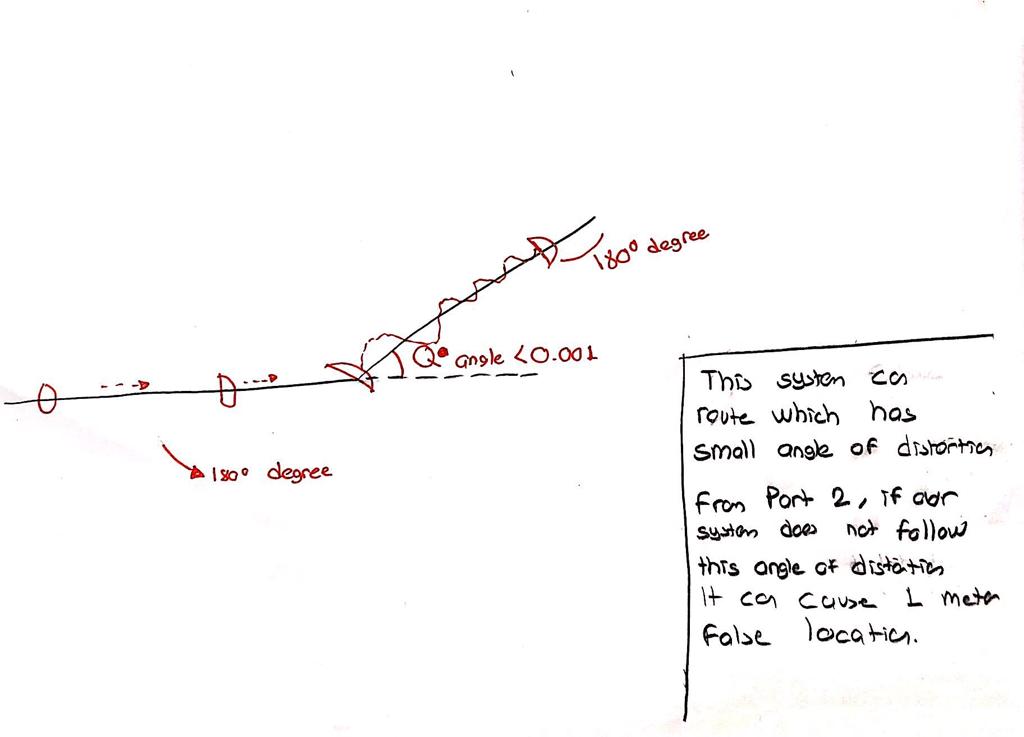 180° degree
Q° angle <0.001
180° degree
This system can
route which has
small angle of distortion
From Port 2, if our
system does not follow
this angle of distotion
It can cause 1 meter
False location.